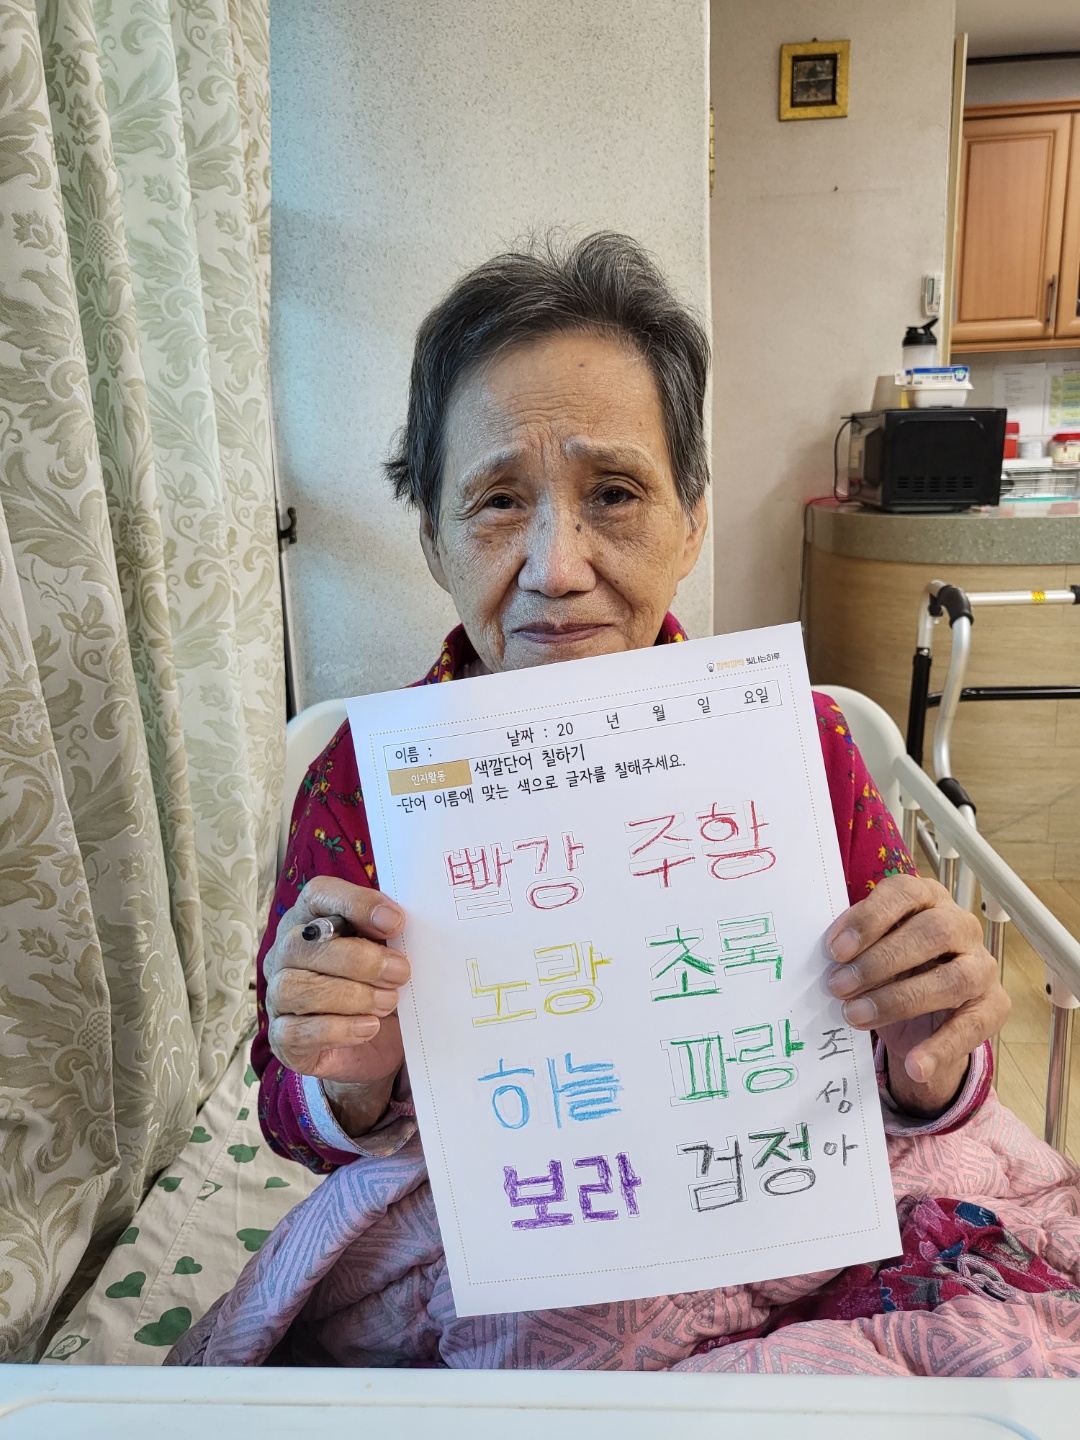 깜빡깜빡 빛나는하루
이름 : 날짜 : 20 년 월 일 요일
인지활동 색깔단어 칠하기
-단어 이름에 맞는 색으로 글자를 칠해주세요.
빨강 주황
노랑 초록
하늘 파랑
보라 검정
조
싱
아